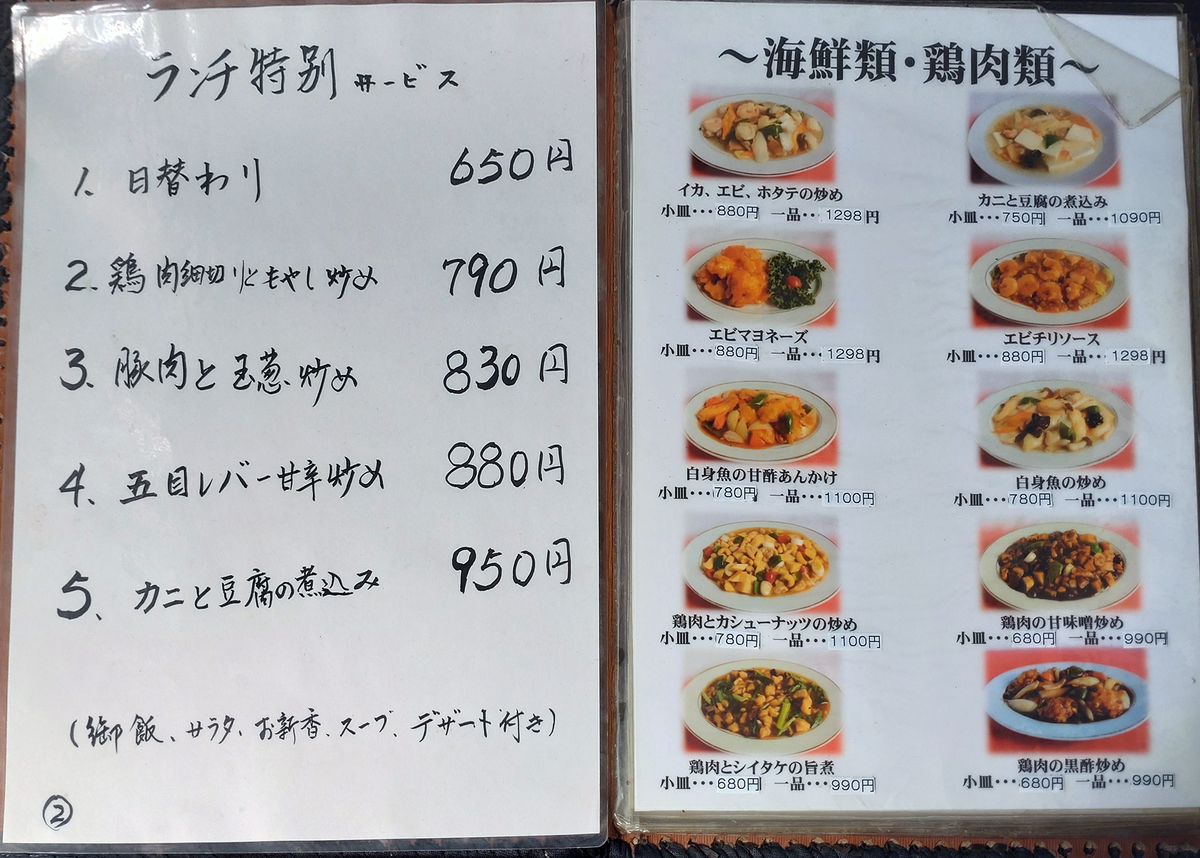 ランチ特別サービス
1、日替わり 650円
2、鶏肉細切りともやし炒め 790円
3、豚肉と玉葱炒め 830円
4、五目レバー甘辛炒め 880円
5、カニと豆腐の煮込み 950円
(御飯、サラダ、お新香、スープ、デザート付き)
②
～海鮮類・鶏肉類～
イカ、エビ、ホタテの炒め
小皿･･･880円 一品･･･1298円
カニと豆腐の煮込み
小皿･･･750円 一品･･･1090円
エビマヨネーズ
小皿･･･880円 一品･･･1298円
エビチリソース
小皿･･･880円 一品･･･1298円
白身魚の甘酢あんかけ
小皿･･･780円 一品･･･1100円
白身魚の炒め
小皿･･･780円 一品･･･1100円
鶏肉とカシューナッツの炒め
小皿･･･780円 一品･･･1100円
鶏肉の甘味噌炒め
小皿･･･680円 一品･･･990円
鶏肉とシイタケの旨煮
小皿･･･680円 一品･･･990円
鶏肉の黒酢炒め
小皿･･･680円 一品･･･990円